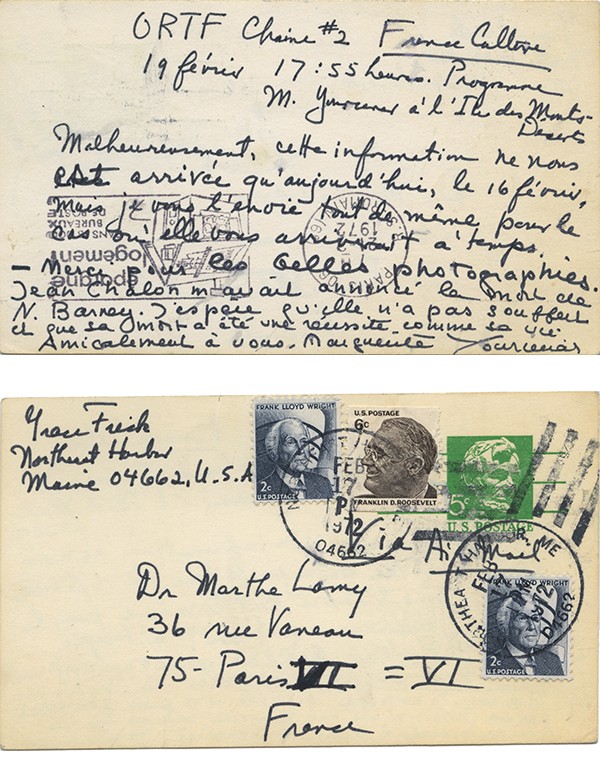 ORTF Chaine #2 France Culture
19 février 17:55 heures. Programme
M. Yourcenar à l'Ile des Monts-
Déserts
Malheureusement, cette information ne nous
est arrivée qu'aujourd'hui, le 16 février,
Mais je vous l'envoie tout de même pour le
cas où elle vous arriverait à temps.
— Merci pour les belles photographies.
Jean Chalon m'avait annoncé la mort de
N. Barney. J'espère qu'elle n'a pas souffert
et que sa mort a été une réussite comme sa vie
Amicalement à vous. Marguerite Yourcenar
épargne
logement
DANS LES
BUREAUX
DE POSTE
PARIS
1972
Grace Frick
Northeast Harbor
Maine 04662, U.S.A
FRANK LLOYD WRIGHT
2c
U.S. POSTAGE
U.S. POSTAGE
6c
FRANKLIN D. ROOSEVELT
5c
U.S. POSTAGE
FEB
17
PM
1972
04662
Via Air Mail
NORTHEAST HARBOR, ME
FEB
17
PM
1972
04662
FRANK LLOYD WRIGHT
2c
U.S. POSTAGE
Dr Marthe Lamy
36 rue Vaneau
75- Paris VII = VI
France